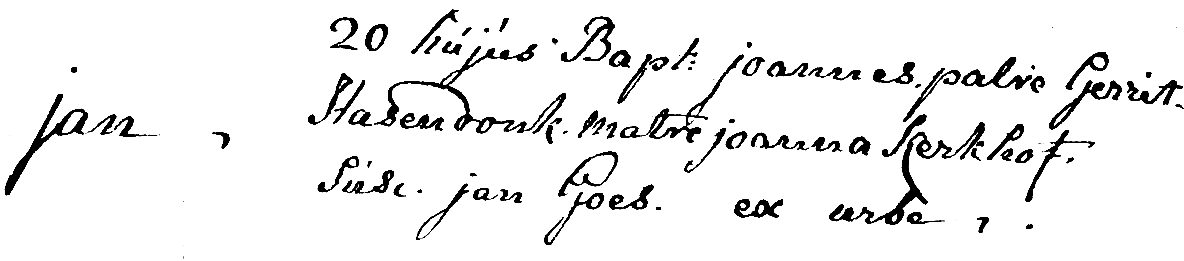 20 hújús Bapt: joannes. patre Gerrit.
jan, Hasendonk. matre joanna Kerkhof.
Súsc. jan Goes. ex urbe,.